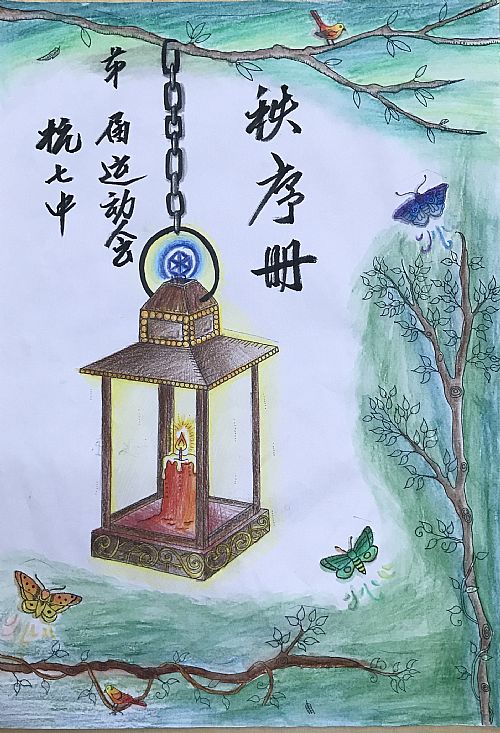 秩序册
第 届运动会
杭七中